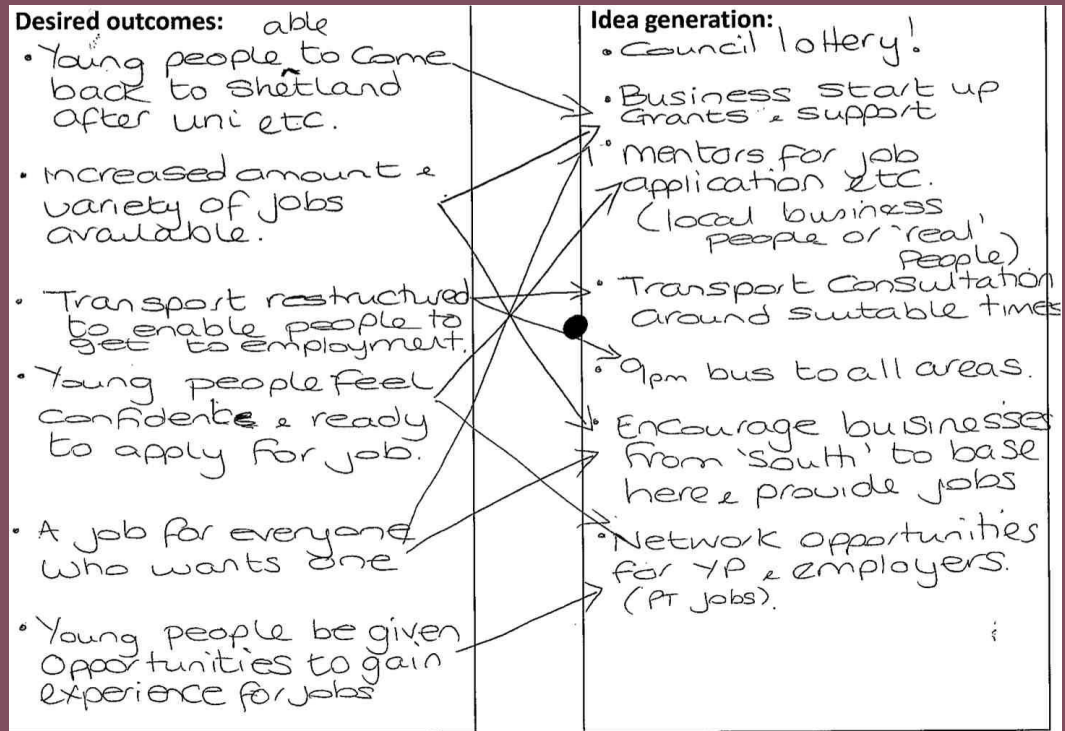 Desired outcomes:
able
• Young people to come
back to Shetland
after uni etc.
• Increased amount &
variety of jobs
available.
• Transport restructured
to enable people to
get to employment.
• Young people feel
confidente & ready
to apply for job.
• A job for everyone
who wants one
• Young people be given
opportunities to gain
experience for jobs
Idea generation:
• Council lottery!
• Business start up
Grants & support
• mentors for job
application etc.
(local business
people or 'real'
people)
• Transport Consultation
around suitable times
• 9pm bus to all areas.
• Encourage businesses
from 'south' to base
here & provide jobs
• Network opportunities
for YP & employers.
(PT jobs).